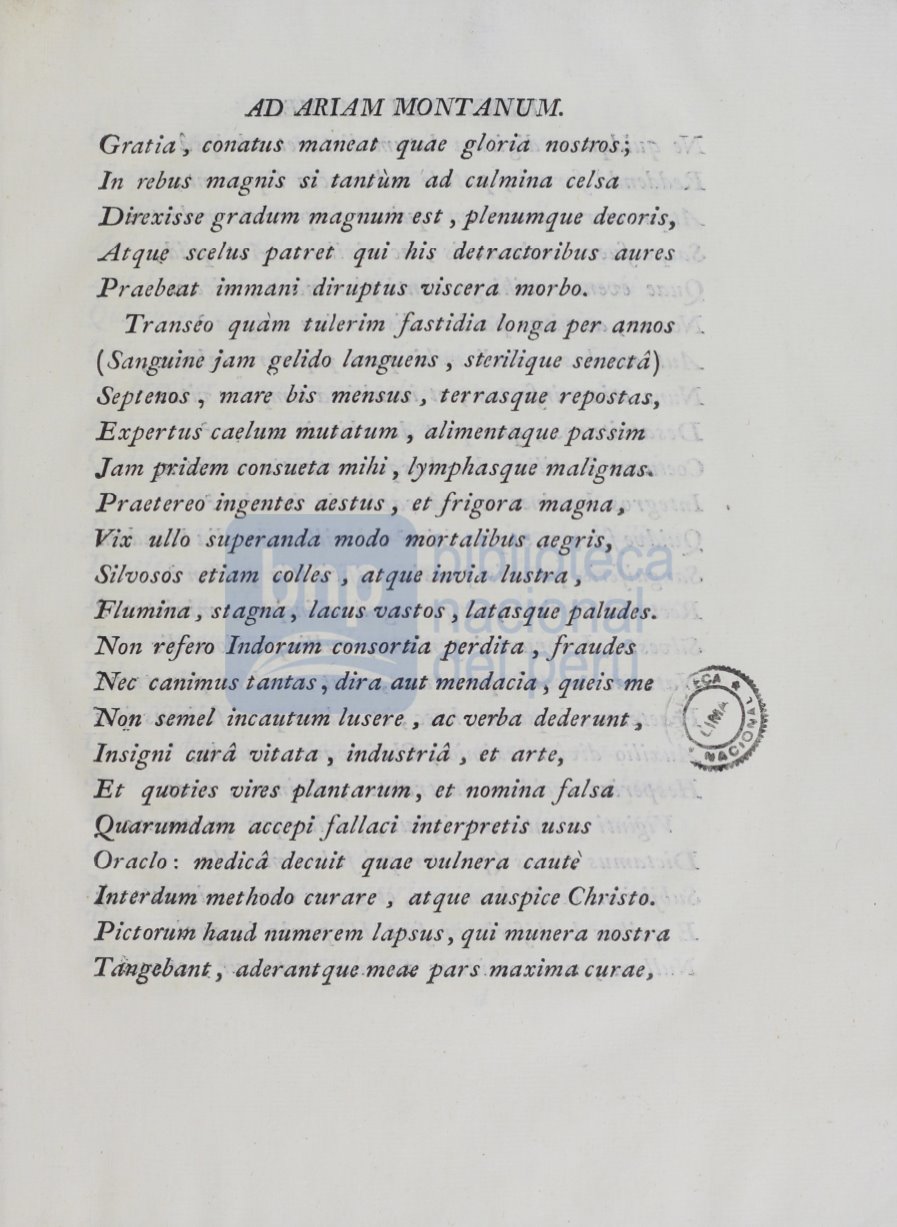 AD ARIAM MONTANUM.
Gratia, conatus maneat quae gloria nostros;
In rebus magnis si tantùm ad culmina celsa
Direxisse gradum magnum est, plenumque decoris,
Atque scelus patret qui his detractoribus aures
Praebeat immani diruptus viscera morbo.
Transeo quàm tulerim fastidia longa per annos
(Sanguine jam gelido languens, sterilique senectâ)
Septenos, mare bis mensus, terrasque repostas,
Expertus caelum mutatum, alimentaque passim
Jam pridem consueta mihi, lymphasque malignas.
Praetereo ingentes aestus, et frigora magna,
Vix ullo superanda modo mortalibus aegris,
Silvosos etiam colles, atque invia lustra,
Flumina, stagna, lacus vastos, latasque paludes.
Non refero Indorum consortia perdita, fraudes
Nec canimus tantas, dira aut mendacia, queis me
Non semel incautum lusere, ac verba dederunt,
Insigni curâ vitata, industriâ, et arte,
Et quoties vires plantarum, et nomina falsa
Quarumdam accepi fallaci interpretis usus
Oraclo: medicâ decuit quae vulnera cautè
Interdum methodo curare, atque auspice Christo.
Pictorum haud numerem lapsus, qui munera nostra
Tangebant, aderantque meae pars maxima curae,
bnp biblioteca
nacional
del Perú
ECA * NACIONAL *
LIMA